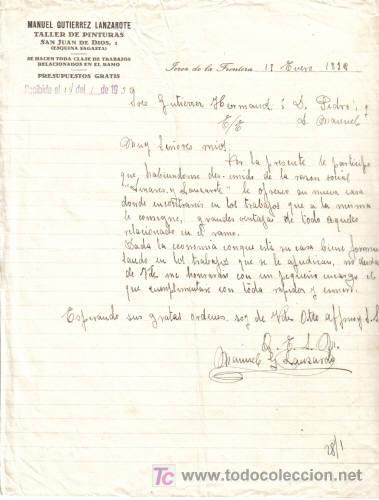 MANUEL GUTIERREZ LANZAROTE
TALLER DE PINTURAS
SAN JUAN DE DIOS, 1
(ESQUINA SAGASTA)
SE HACEN TODA CLASE DE TRABAJOS
RELACIONADOS EN EL RAMO
PRESUPUESTOS GRATIS
Jerez de la Frontera 17 Enero 1939
Recibido el del de 19 39
Sres Gutierrez Hermanos D. Pedro y
E/E D. Manuel
Muy Señores mios:
Por la presente le participo
que habiendome de la razon social
"Linares y Lanzarote" le ofrezco su nueva casa
donde encontrarán en los trabajos que a la misma
le consigne, grandes ventajas de todo aquello
relacionado en el ramo.
Dada la economía conque esta su casa viene
en los trabajos que se le adjudican, no
de Vds me honrarán con un pequeño encargo el
que cumplimentare con toda rapidez y esmero.
Esperando sus gratas ordenes soy de Vds Atto affmo y S.S.
Q. E. S. M.
Manuel G Lanzarote
28/1
TC
www.todocoleccion.net